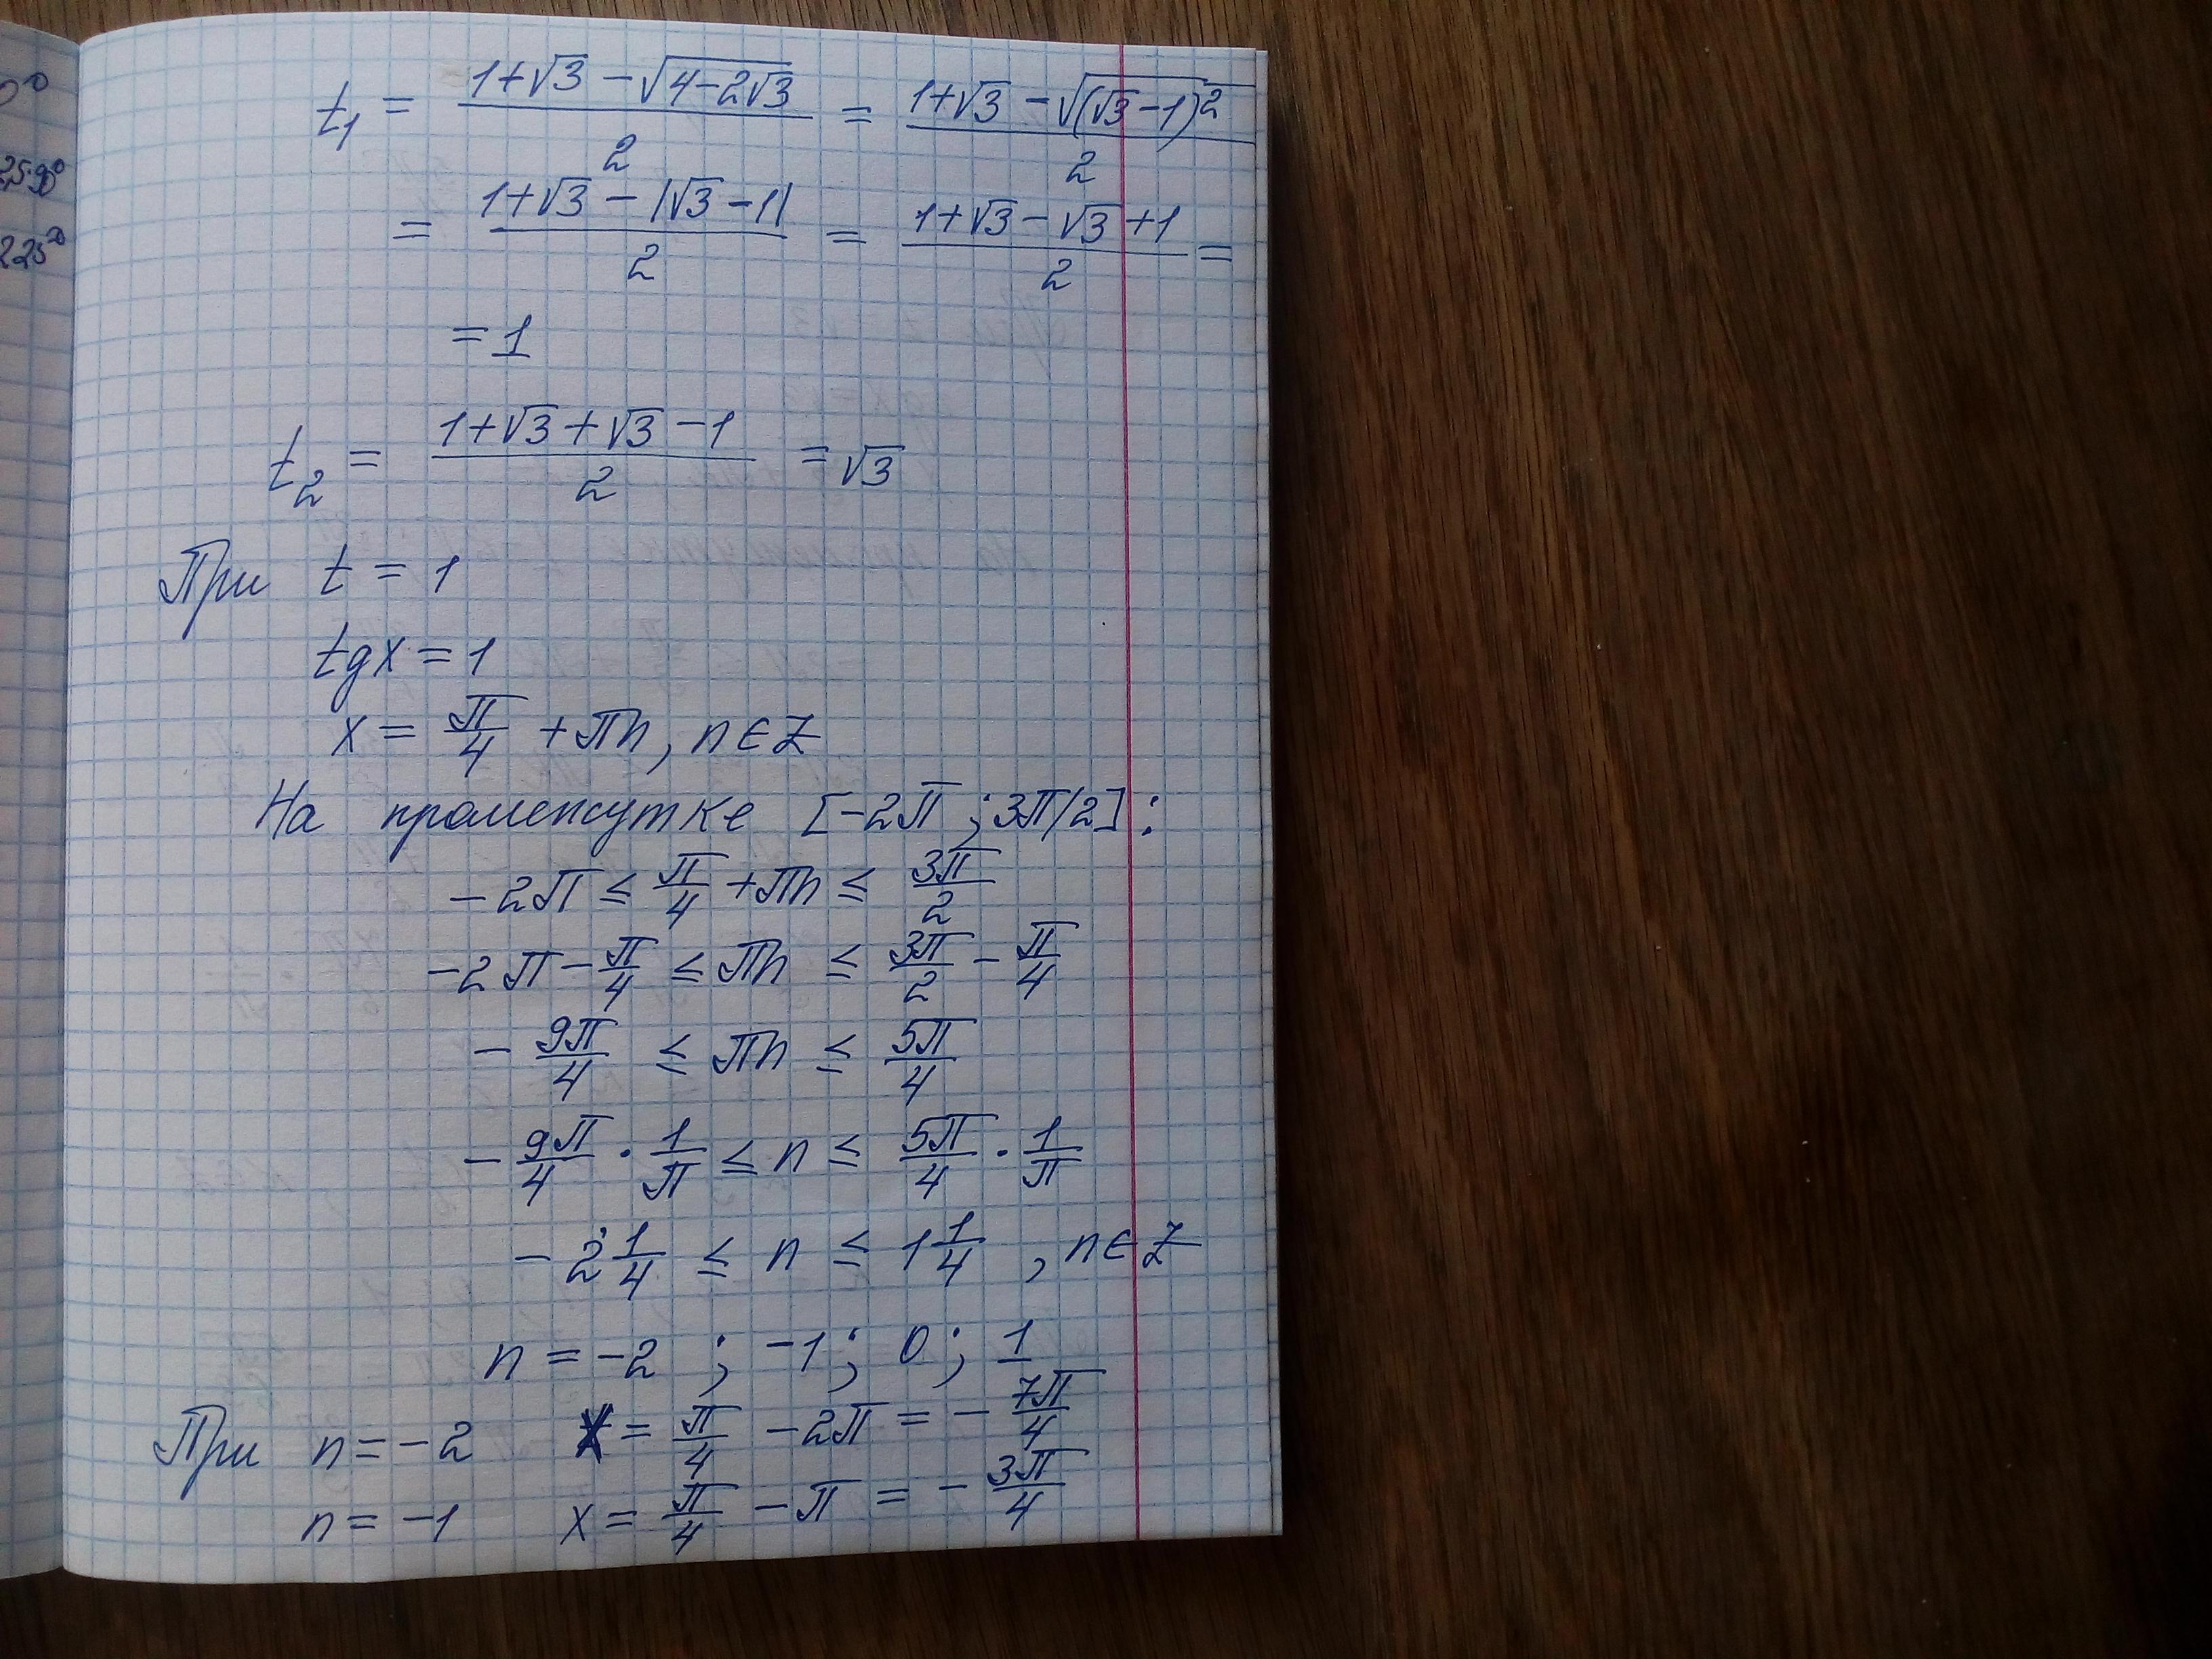 0°
25·90°
225°
t₁ = (1+√3 − √(4−2√3))/2 = (1+√3 − √((√3−1)²))/2
= (1+√3 − |√3 −1|)/2 = (1+√3 − √3 +1)/2 =
= 1
t₂ = (1+√3+√3 −1)/2 = √3
При t = 1
tgx = 1
x = π/4 + πn, n∈Z
На промежутке [−2π ; 3π/2] :
−2π ≤ π/4 + πn ≤ 3π/2
−2π − π/4 ≤ πn ≤ 3π/2 − π/4
− 9π/4 ≤ πn ≤ 5π/4
− 9π/4 · 1/π ≤ n ≤ 5π/4 · 1/π
− 2 1/4 ≤ n ≤ 1 1/4 , n∈Z
n = −2 ; −1 ; 0 ; 1
При n = −2 x = π/4 − 2π = − 7π/4
n = −1 x = π/4 − π = − 3π/4